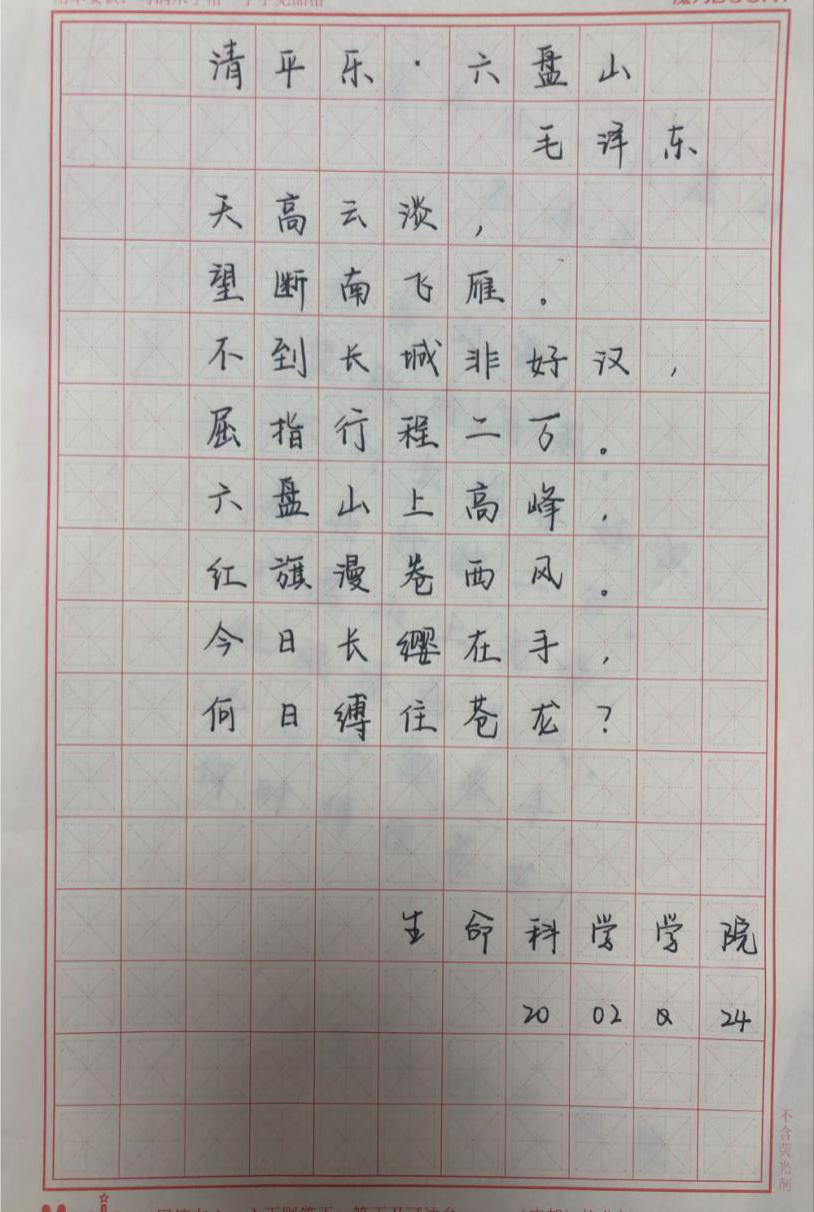 清平乐·六盘山
毛泽东
天高云淡，
望断南飞雁。
不到长城非好汉，
屈指行程二万。
六盘山上高峰，
红旗漫卷西风。
今日长缨在手，
何日缚住苍龙？
生命科学学院
20 02 Q 24
不含荧光剂